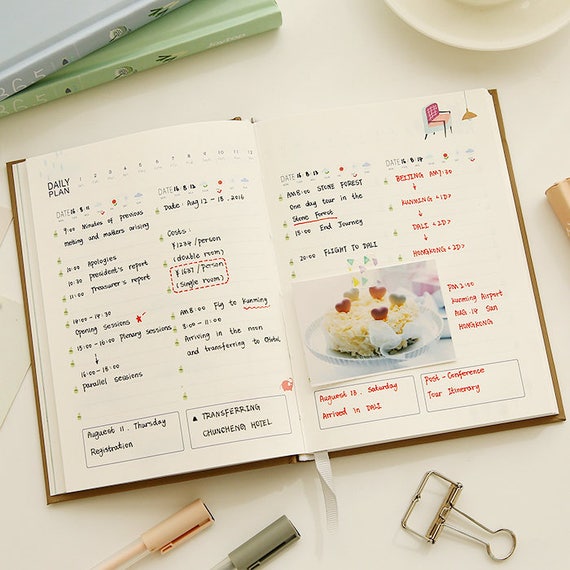 365
365
DAILY
PLAN
1 2 3 4 5 6 7 8 9 10 11 12
DATE 16.8.11
9:00 Minutes of previous
meeting and matters arising
10:00 Apologies
10:30 president's report
11:00 Treasurer's report
14:00 - 14:30
Opening sessions
15:00 - 16:00 Plenary sessions
16:00 - 18:00
parallel sessions
Auguest 11. Thursday
Registration
DATE 16.8.12
Date: Aug 12 - 18. 2016
Costs:
¥1234/person
(double room)
¥1637/person
(single room)
AM8:00 Fly to Kunming
8:00 - 11:00
Arriving in the noon
and transferring to
▲ TRANSFERRING
CHUNCHENG HOTEL
DATE 16.8.13
AM8:00 STONE FOREST
One day tour in the
Stone Forest.
18:00 End Journey
20:00 FLIGHT TO DALI
Auguest 13. Saturday
Arrived in DALI
DATE 16.8.14
BEIJING AM7:30
KUNMING <1D>
DALI <2D>
HONGKONG <2D>
PM 2:00
Kunming Airport
AUG.14 Sun
HONGKONG
Post-Conference
Tour Itinerary